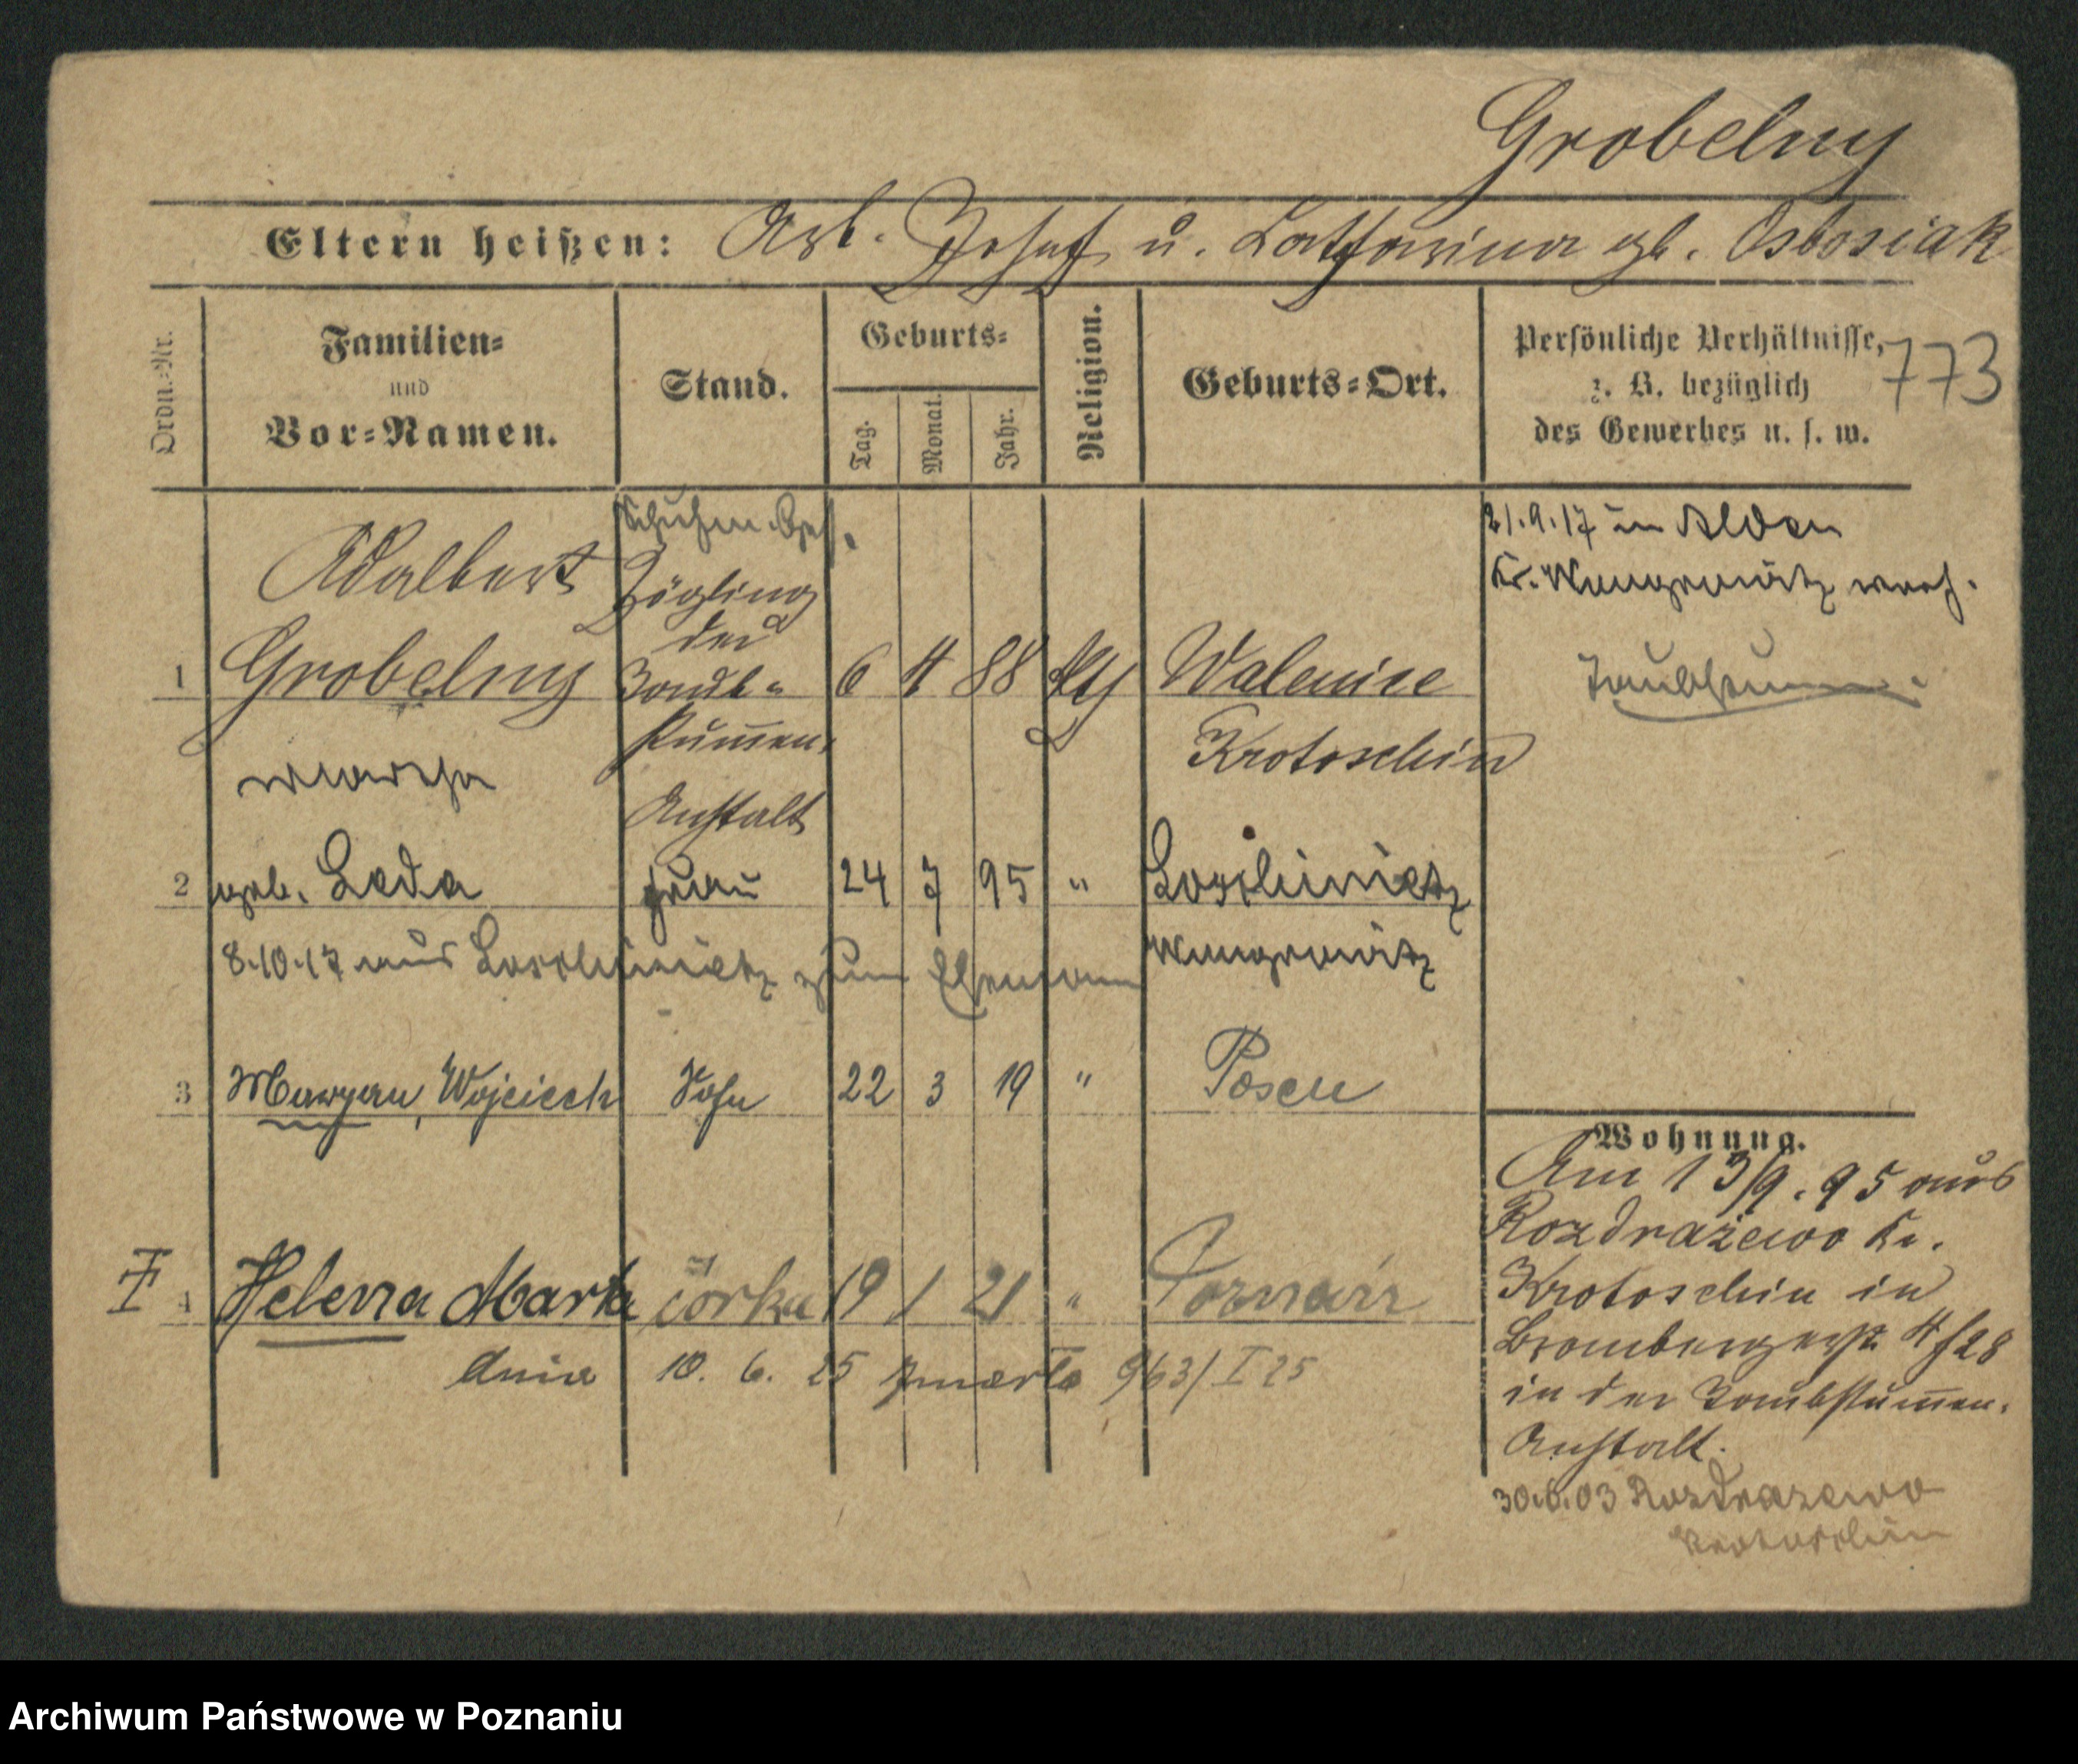 Grobelny
Eltern heißen: Arb. Josef u. Katharina gb. Osbosiak
Ordn.-Nr.
Familien-
und
Vor-Namen.
Stand.
Geburts-
Tag.
Monat.
Jahr.
Religion.
Geburts-Ort.
Persönliche Verhältnisse,
z. B. bezüglich
des Gewerbes u. s. w.
773
Schuhm. Ges.
Adalbert Zögling
der
1 Grobelny Taub- 6 4 88 kth Walenice
stummen
Krotoschin
Anstalt
21.9.17 in Alden
Kr. Wongrowitz verh.
Taubstumm.
2 geb. Leda Frau 24 7 95 "
8.10.17 aus zum Ehemann
Wongrowitz
3 Maryan, Wojciech Sohn 22 3 19 " Posen
4 Helena Marta córka 19 1 21 " Poznań
dnia 10. 6. 25 zmarła 963/I 25
Wohnung.
Am 13/9. 95 aus
Rozdrażewo Kr.
Krotoschin in
Brombergerstr.
in der Taubstummen.
Anstalt.
30.6.03 Rozdrazewo
Krotoschin
Archiwum Państwowe w Poznaniu